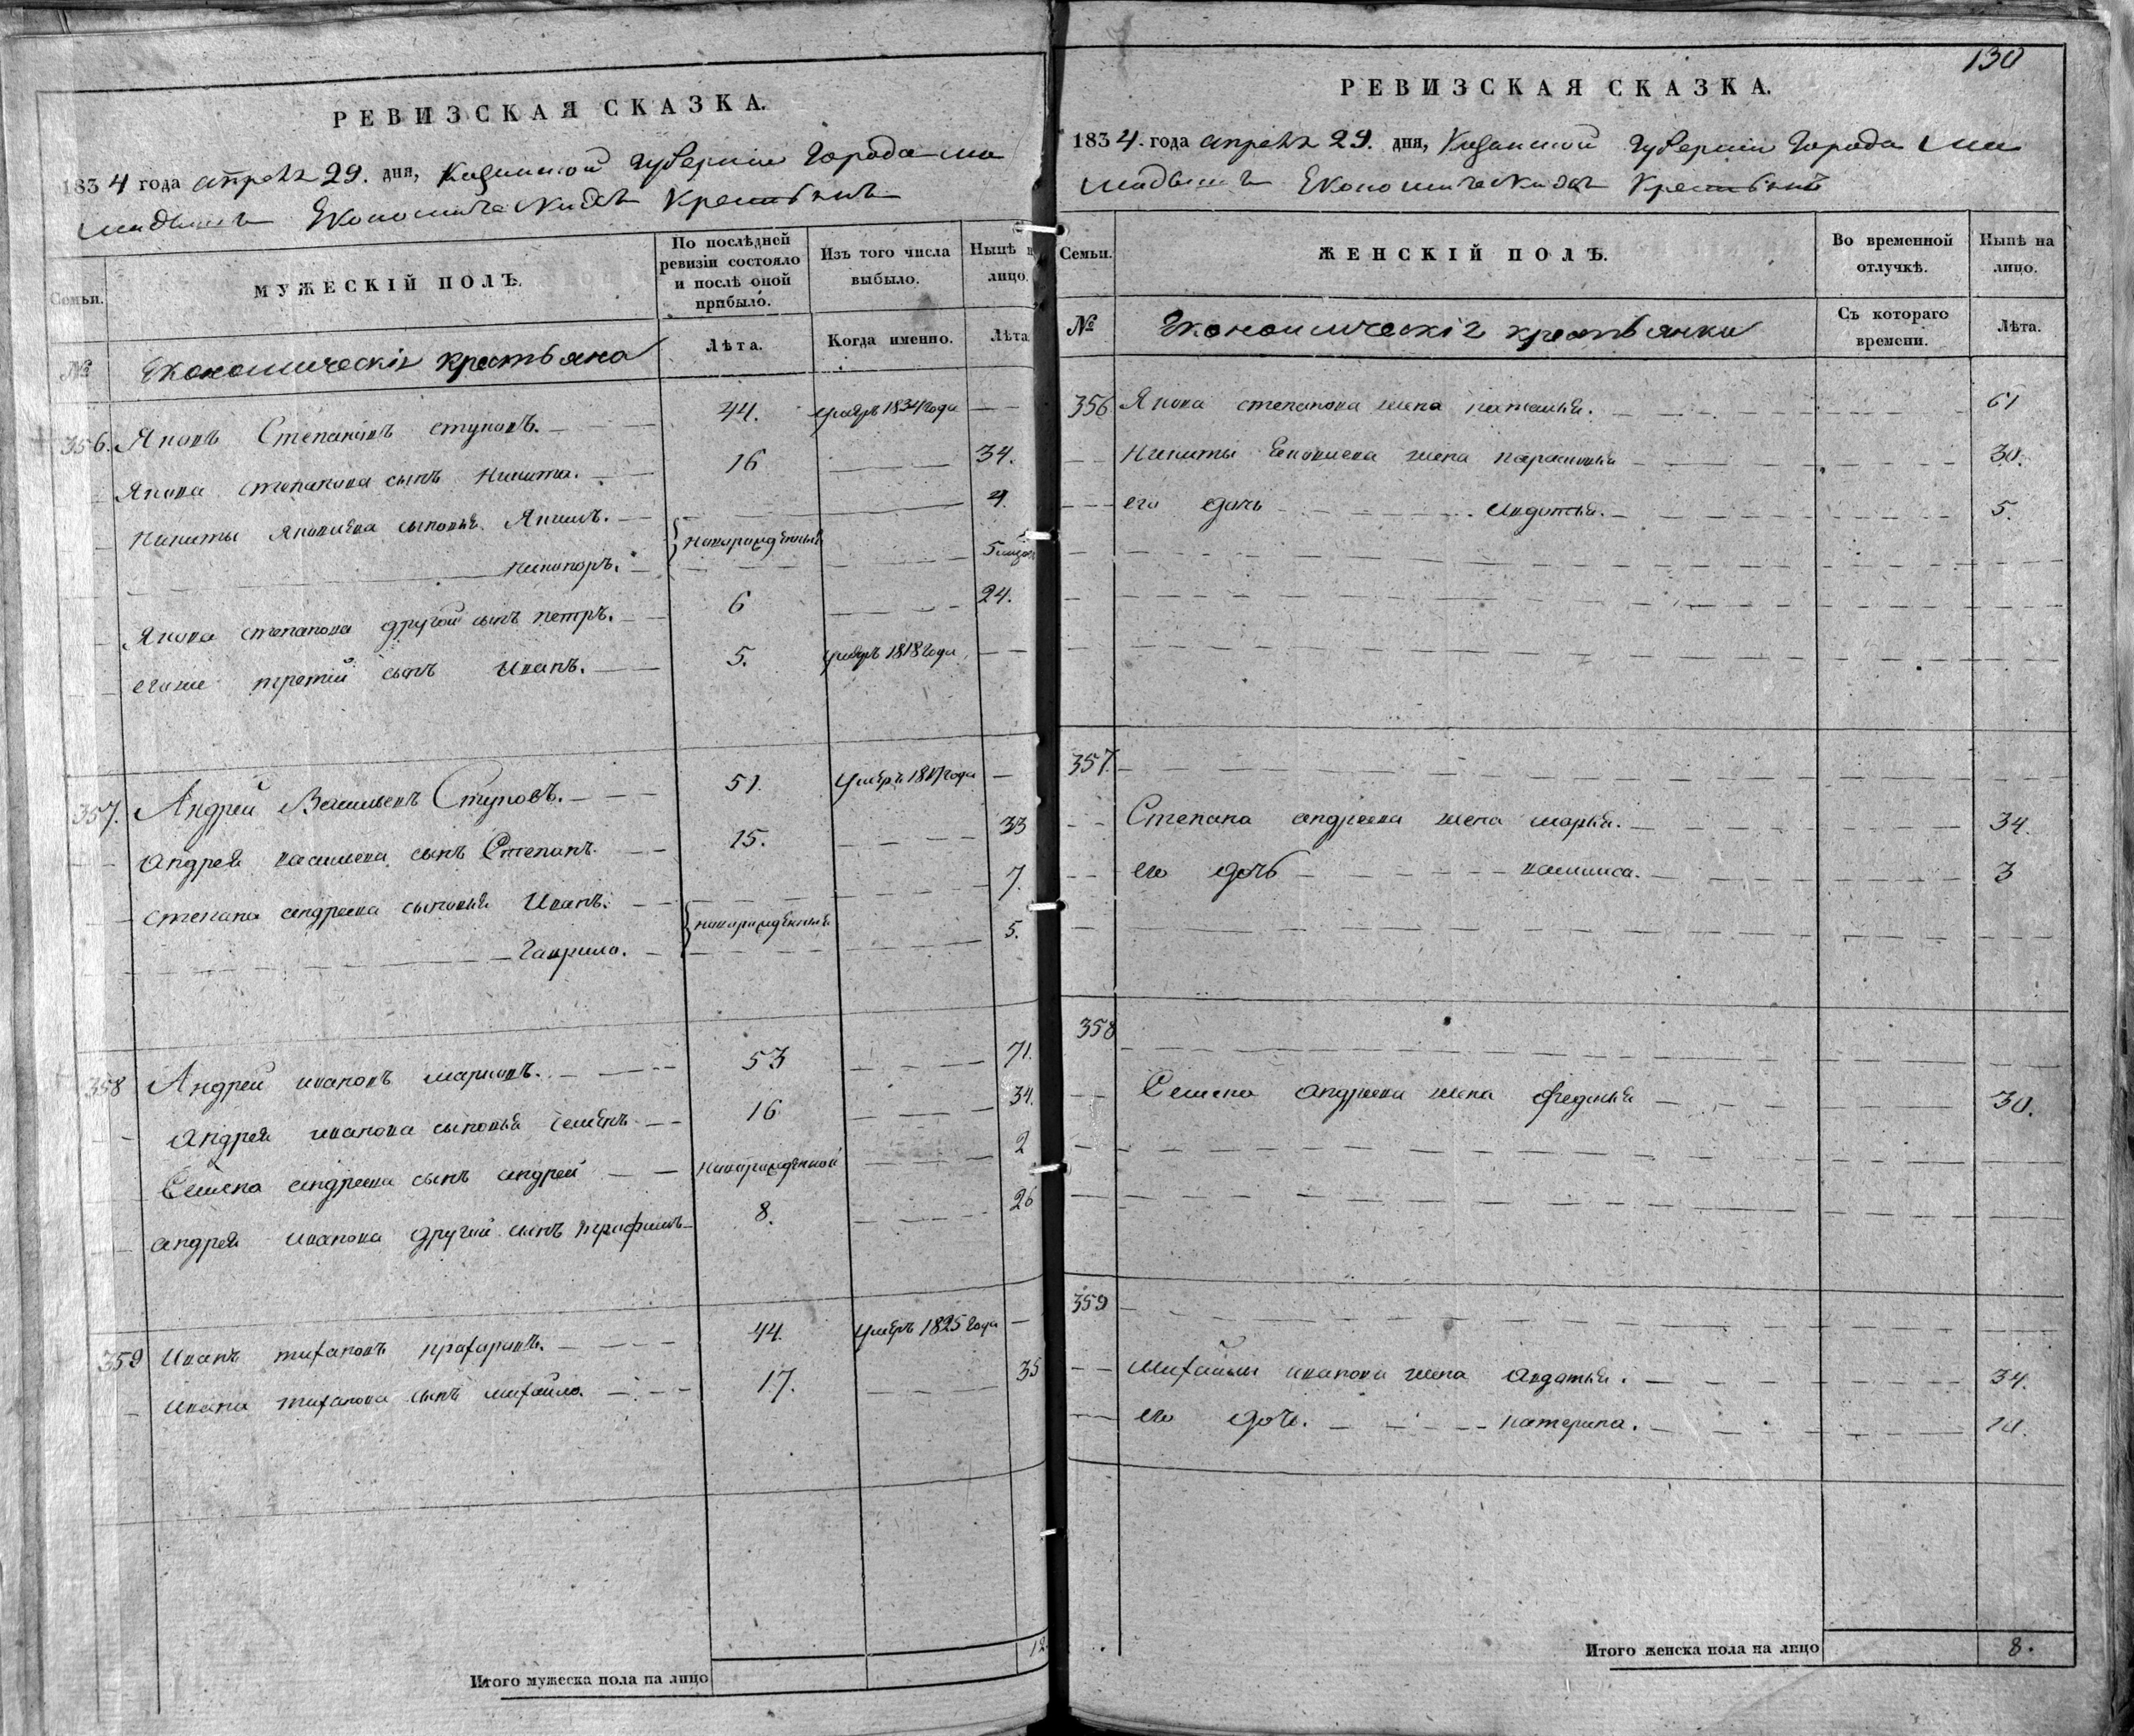 РЕВИЗСКАЯ СКАЗКА.
1834 года апреля 29. дня, Казанской Губернии Города Ма
мадыша Економическихъ Крестьянъ
Семьи.
МУЖЕСКІЙ ПОЛЪ.
По послѣдней ревизіи состояло и послѣ оной прибыло.
Изъ того числа выбыло.
Нынѣ н лицо.
№
Економическія крестьяна
Лѣта.
Когда именно.
Лѣта
356. Яковъ Степановъ ступовъ. 44. умеръ 1834 года
Якова степанова сынъ Никита. 16 34.
Никиты яковлева сыновья Якимъ. новорожденныя 4.
никаноръ. 5
Якова степанова другой сынъ петръ. 6 24.
егоже третій сынъ Иванъ. 5. умеръ 1818 года
357. Андрей Васильевъ Ступовъ. 51. умеръ года
Андрея васильева сынъ Степанъ. 15. 33
степана андреева сыновья Иванъ. новорожденныя 7.
Гаврило. 5.
358 Андрей ивановъ 53 71.
Андрея иванова сыновья семенъ 16 34.
Семена андреева сынъ андрей новорожденной 2
андрея иванова другой сынъ трофимъ 8. 26
359 Иванъ тихановъ 44. умеръ 1825 года
ивана тиханова сынъ михайло. 17. 35
Итого мужеска пола на лицо 12
130
РЕВИЗСКАЯ СКАЗКА.
1834. года апреля 29. дня, Казанской Губерніи Города Ма
мадыша Економическихъ Крестьянъ
Семьи.
ЖЕНСКІЙ ПОЛЪ.
Во временной отлучкѣ.
Нынѣ на лицо.
№
Економическія крестьянки
Съ котораго времени.
Лѣта.
356 Якова степанова жена наталья. 61
Никиты яковлева жена парасковья 30.
его дочь авдотья. 5.
357.
Степана андреева жена марья. 34.
его дочь 3
358
Семена андреева жена федосья 30.
359
Михайлы иванова жена авдотья. 34.
его дочь. катерина. 10.
Итого женска пола на лицо 8.